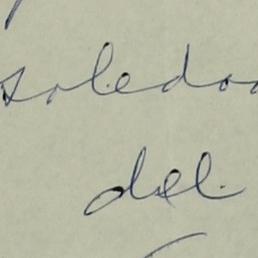 soledad
del